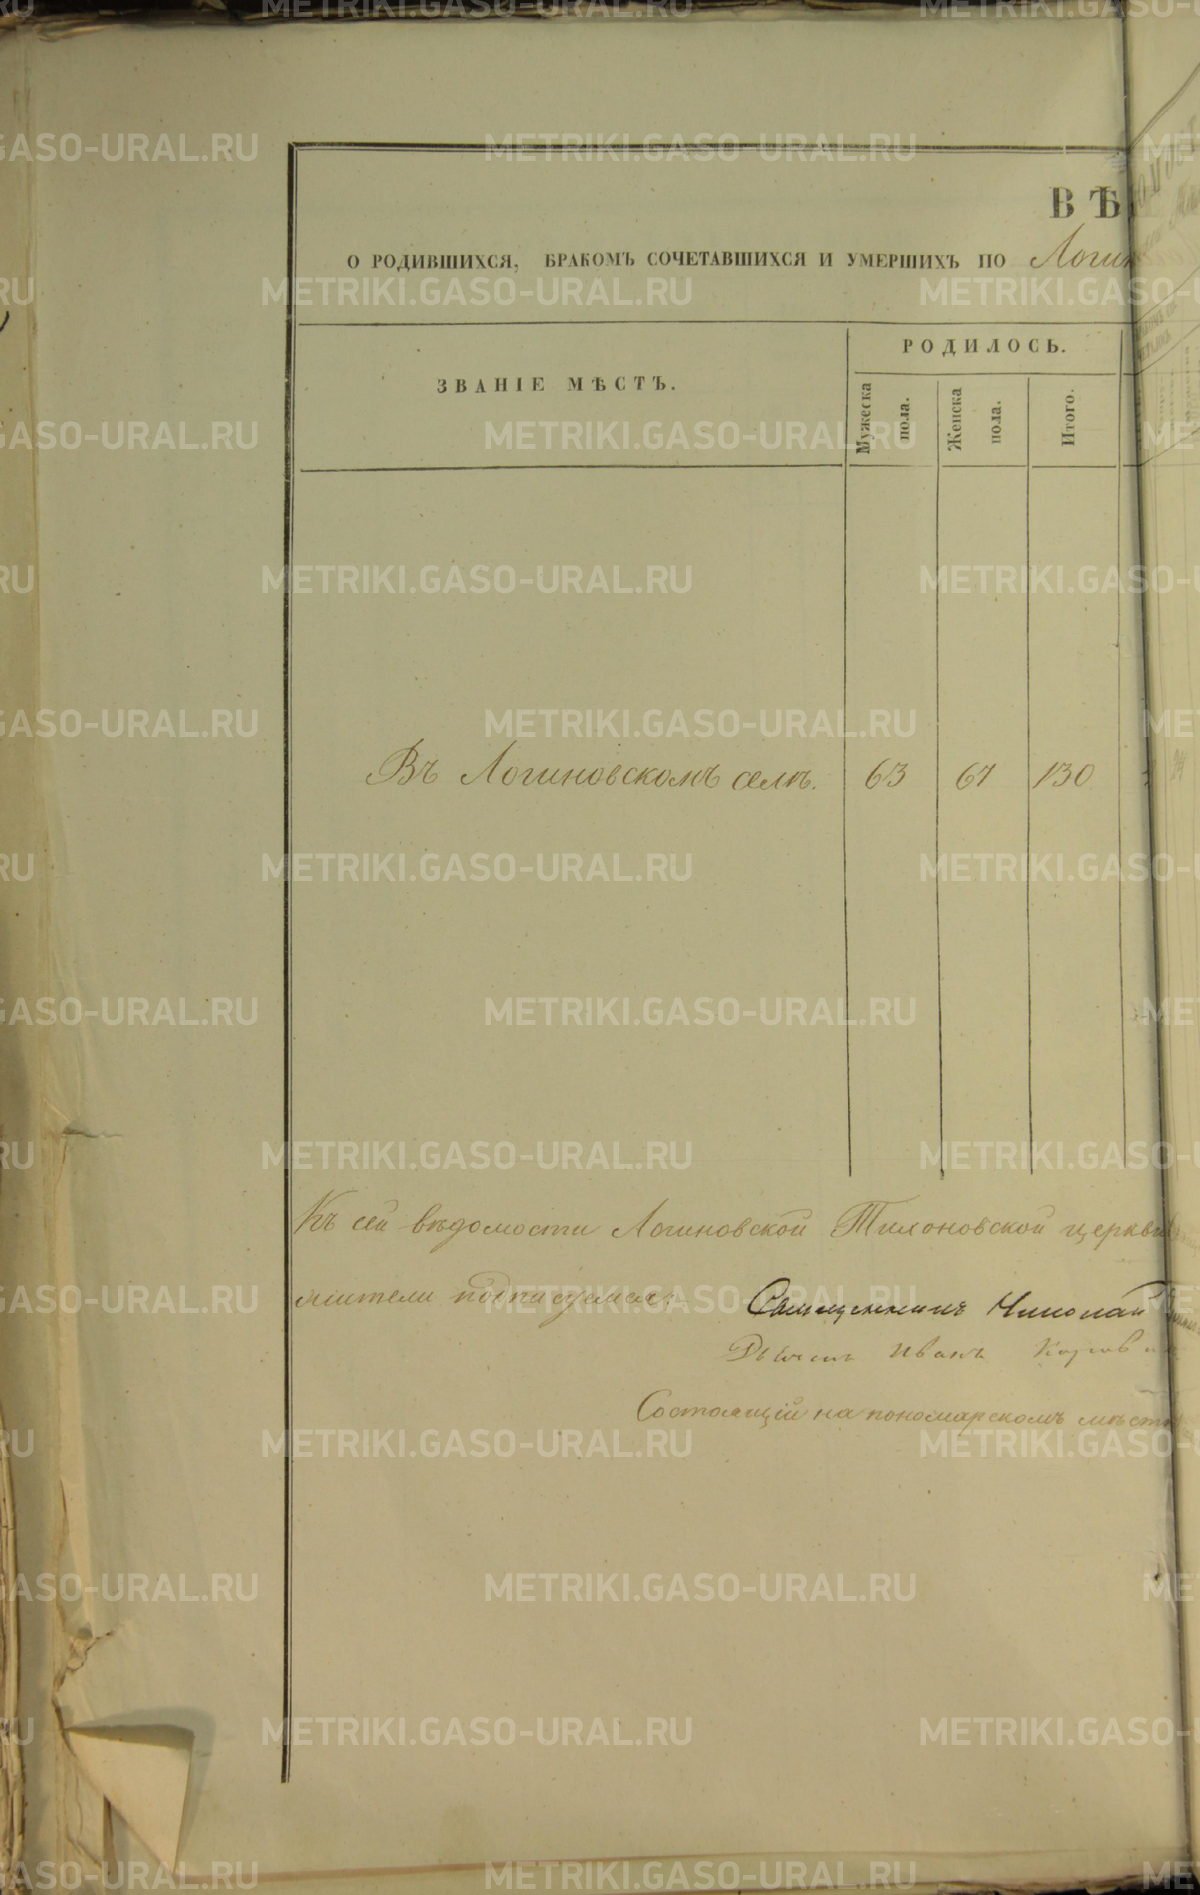 ВѢ
О РОДИВШИХСЯ, БРАКОМЪ СОЧЕТАВШИХСЯ И УМЕРШИХЪ ПО Логин
ЗВАНІЕ МѢСТЪ.
РОДИЛОСЬ.
Мужеска пола.
Женска пола.
Итого.
Въ Логиновскомъ селѣ. 63 67 130
Къ сей вѣдомости Логиновской Тихоновской церкви
жители подписуемся:
Священникъ Николай
Дьячекъ Иванъ Коровин
Состоящій на пономарскомъ мѣстѣ
METRIKI.GASO-URAL.RU